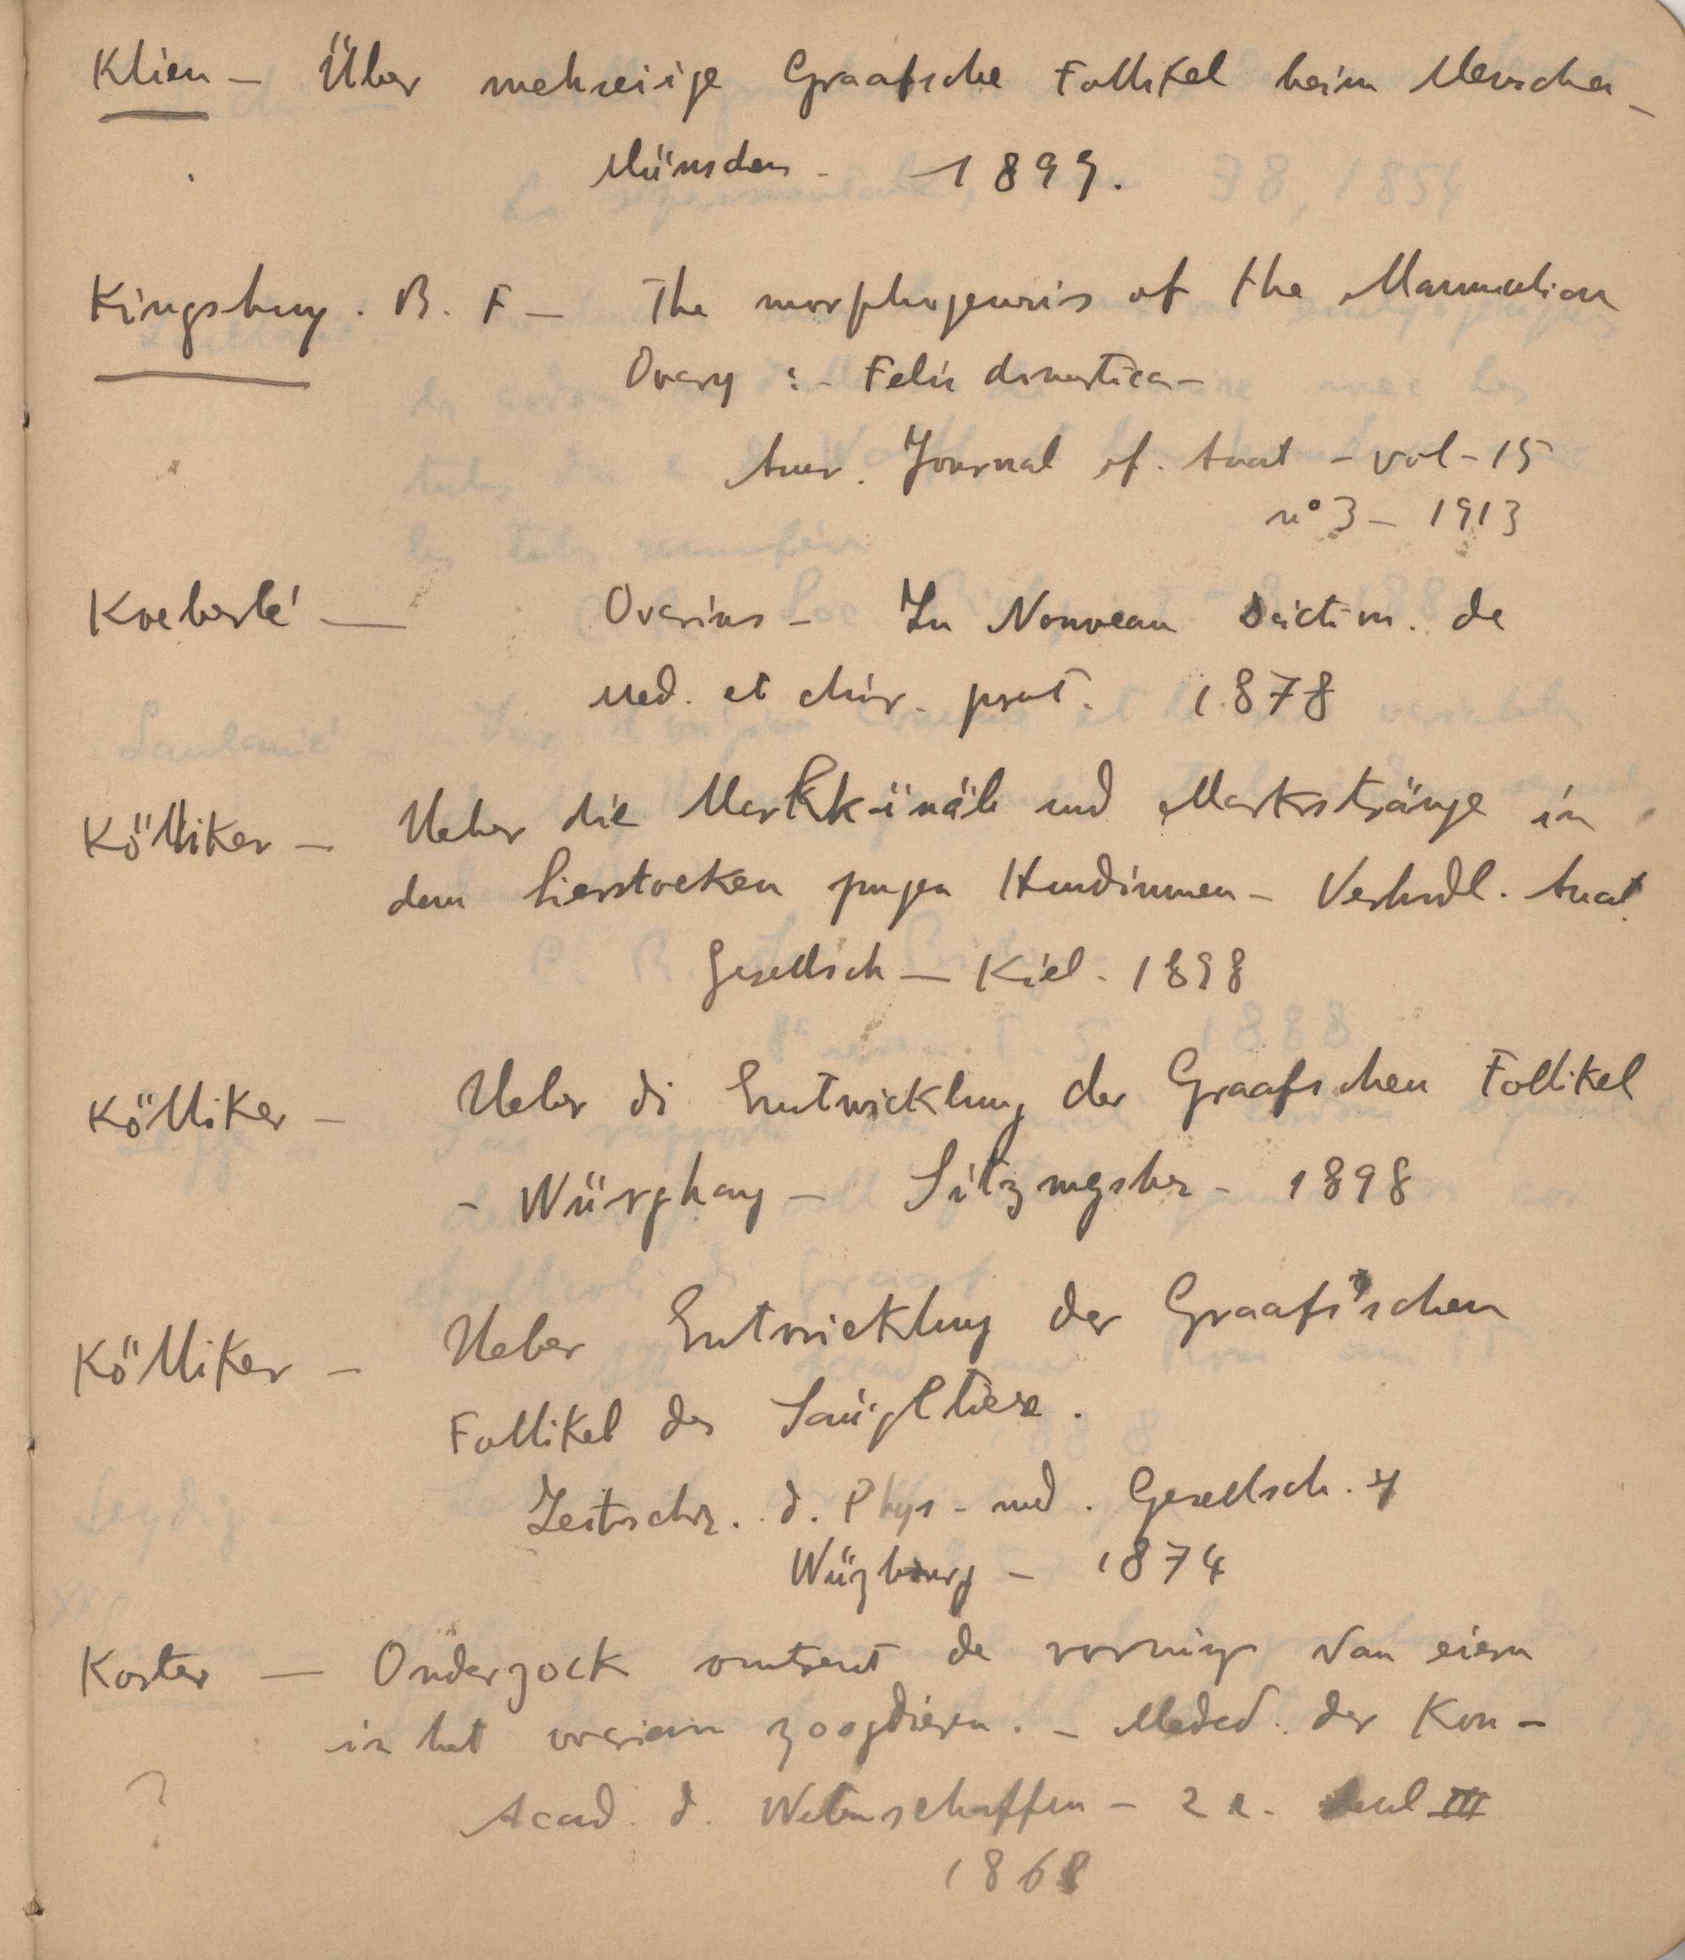 Klien – Über mehreiige Graafsche Follikel beim Menschen –
München – 1899.
Kingsbury . B. F – The morphogenesis of the Mammalian
Ovary : – Felis domestica –
Amer. Journal of. Anat – vol – 15
n° 3 – 1913
Koeberlé — Ovarius – In Nouveau Diction. de
Med. et chir. prat. 1878
Kölliker – Ueber die Markkänäle und Markstränge in
den Eierstocken jungen Hundinnen – Verhndl. Anat.
Gesellsch – Kiel – 1898
Kölliker – Ueber di Entwicklung der Graafschen Follikel
– Würzburg – Sitzungsber – 1898
Kölliker – Ueber Entwicklung der Graafs'schen
Follikel der Säugetiere.
Zeitschr. d. Phys – med. Gesellsch. z
Würzburg – 1874
Koster — Onderzoek omtrent de vorming van eieren
in het ovarium zoogdieren. – Meded. der Kon –
? Acad. d. Wetenschaffen – 2 R. Deel III
1868